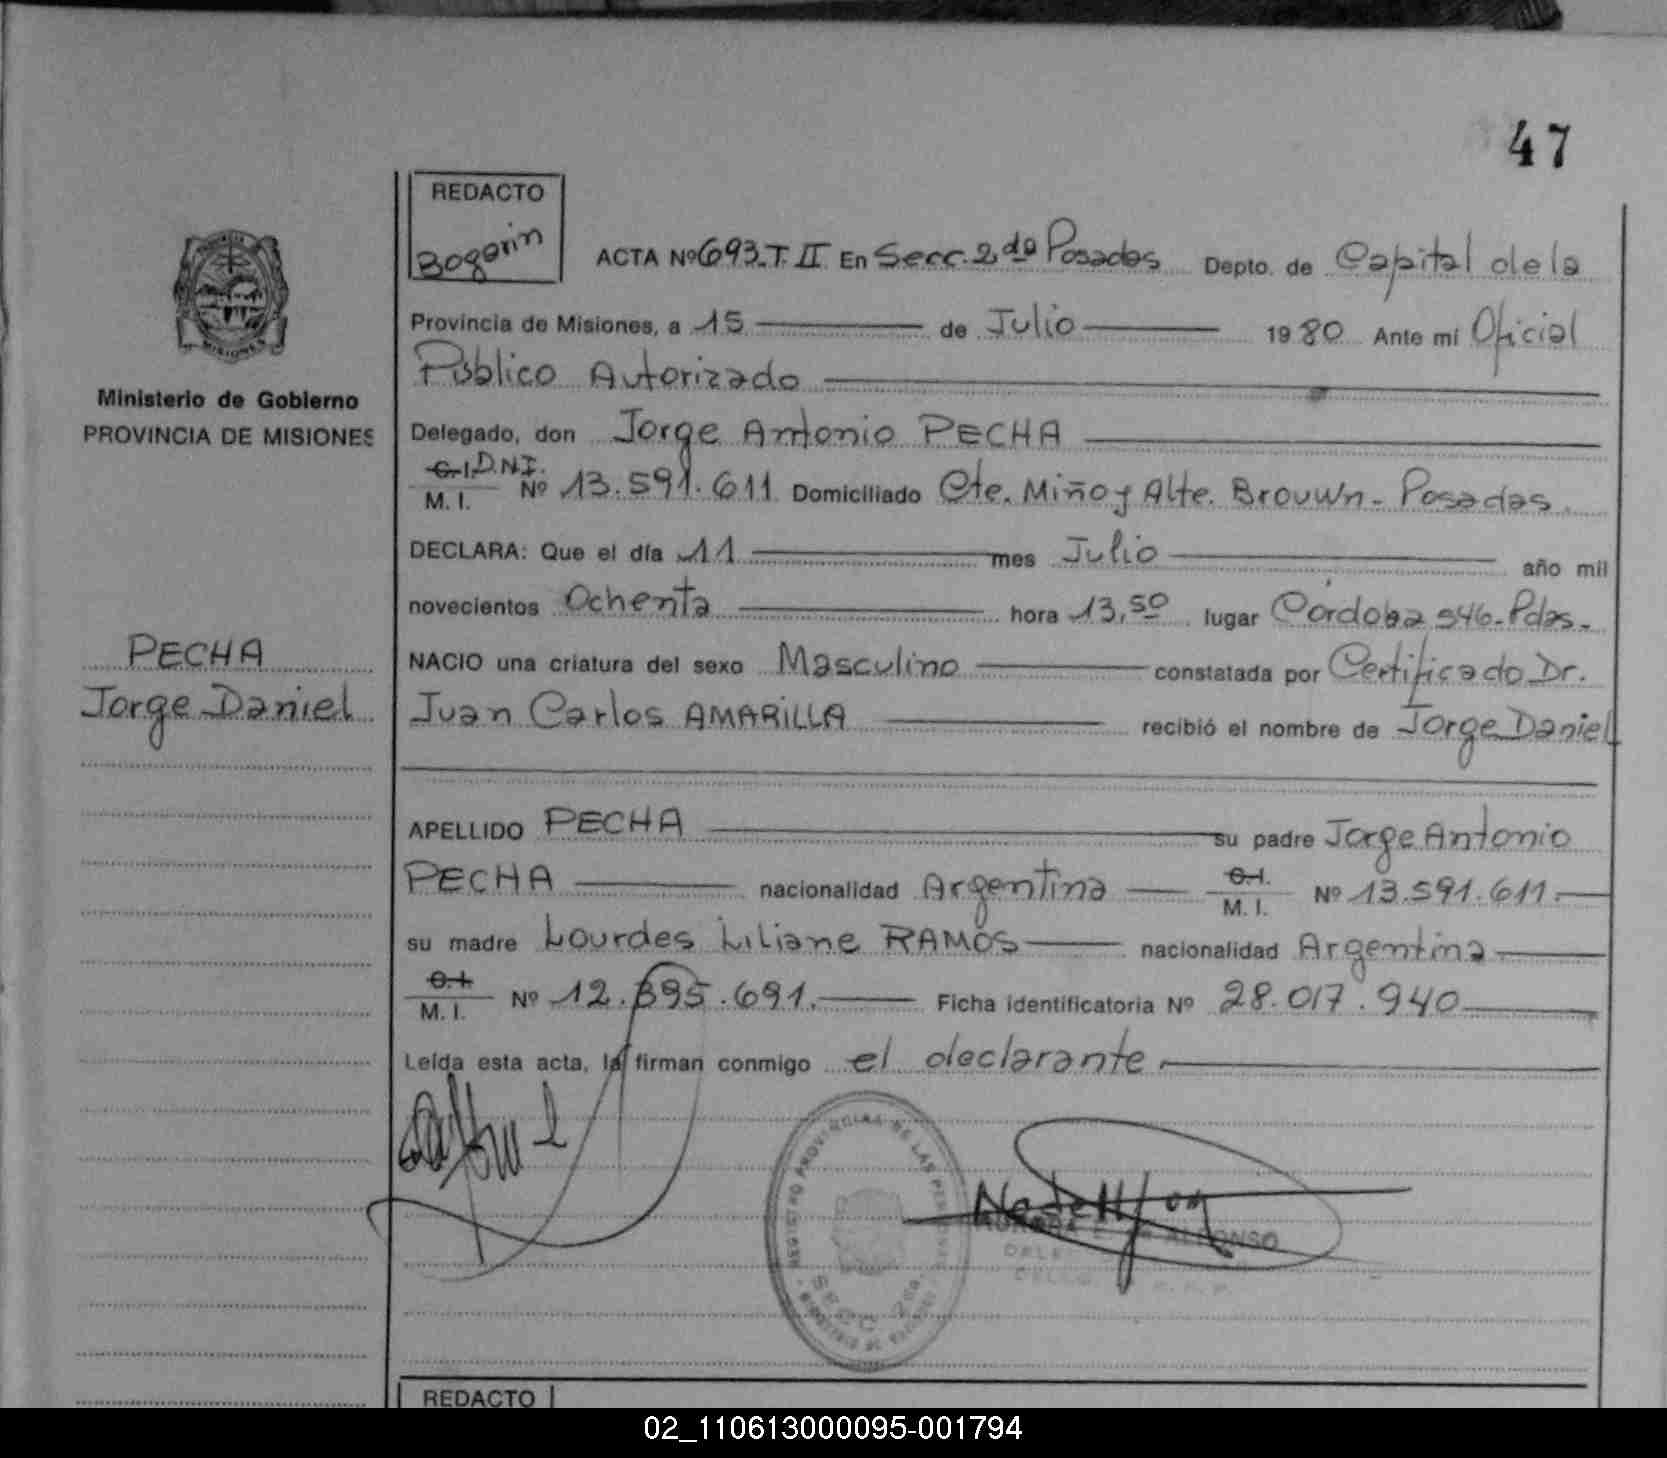 47
REDACTO
Bogarin
ACTA Nº 693.T.II En Secc. 2da Posadas Depto. de Capital de la
Provincia de Misiones, a 15 de Julio 1980 Ante mi Oficial
Público Autorizado
Ministerio de Gobierno
PROVINCIA DE MISIONES
Delegado, don Jorge Antonio PECHA
C.I. D.N.I.
M. I. Nº 13.591.611 Domiciliado Cte. Miño y Alte. Brouwn - Posadas.
DECLARA: Que el día 11 mes Julio año mil
novecientos Ochenta hora 13,50 lugar Córdoba 546- Pdas-
PECHA
Jorge Daniel
NACIO una criatura del sexo Masculino constatada por Certificado Dr.
Juan Carlos AMARILLA recibió el nombre de Jorge Daniel
APELLIDO PECHA su padre Jorge Antonio
PECHA nacionalidad Argentina C.I. M. I. Nº 13.591.611.
su madre Lourdes Liliane RAMOS nacionalidad Argentina
C.I. M. I. Nº 12.895.691. Ficha identificatoria Nº 28.017.940
Leída esta acta, la firman conmigo el declarante
REGISTRO PROVINCIAL DE LAS PERSONAS
SECC. 2da.
ALFONSO
REDACTO
02_110613000095-001794